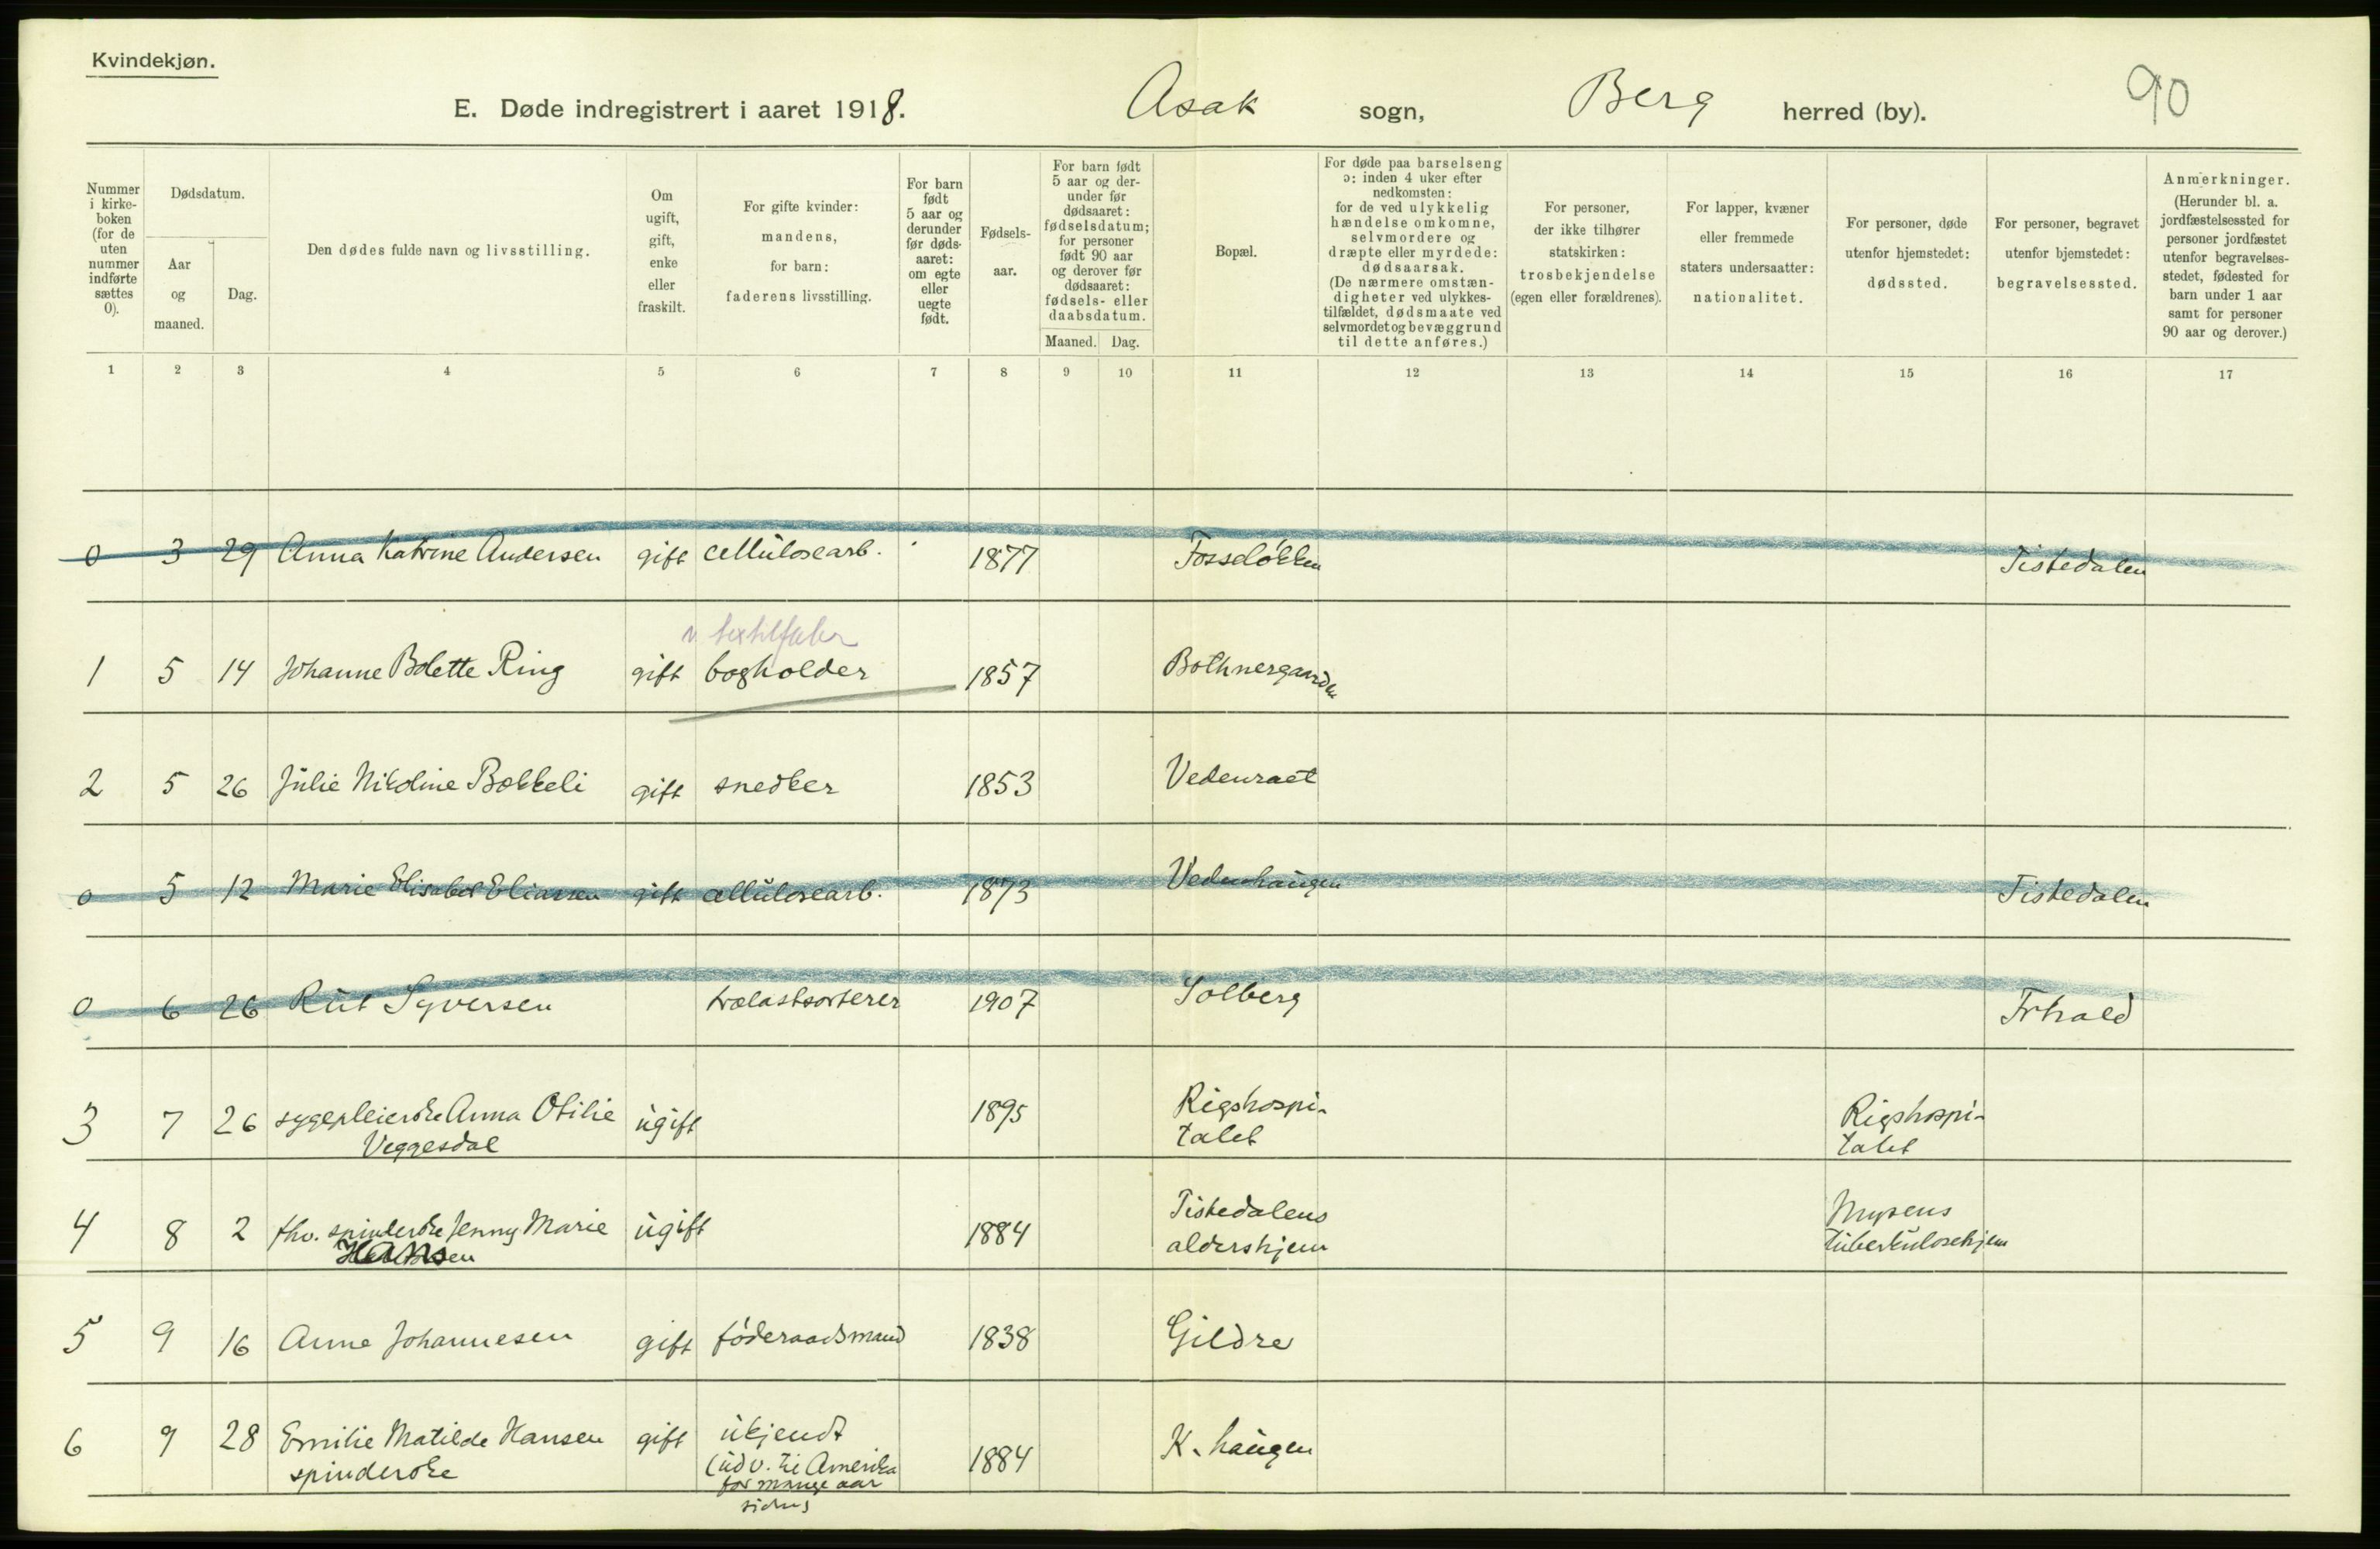 Kvindekjøn.
E. Døde indregistrert i aaret 1918. Asak sogn, Berg herred (by). 90
Nummer i kirke- boken (for de uten nummer indførte sættes 0).
Dødsdatum.
Aar og maaned.
Dag.
Den dødes fulde navn og livsstilling.
Om ugift, gift, enke eller fraskilt.
For gifte kvinder: mandens, for barn: faderens livsstilling.
For barn født 5 aar og derunder før døds- aaret: om egte eller uegte født.
Fødsels- aar.
For barn født 5 aar og der- under før dødsaaret: fødselsdatum; for personer født 90 aar og derover før dødsaaret: fødsels- eller daabsdatum.
Maaned. Dag.
Bopæl.
For døde paa barselseng ɔ: inden 4 uker efter nedkomsten: for de ved ulykkelig hændelse omkomne, selvmordere og dræpte eller myrdede: dødsaarsak. (De nærmere omstæn- digheter ved ulykkes- tilfældet, dødsmaate ved selvmordet og bevæggrund til dette anføres.)
For personer, der ikke tilhører statskirken: trosbekjendelse (egen eller forældrenes).
For lapper, kvæner eller fremmede staters undersaatter: nationalitet.
For personer, døde utenfor hjemstedet: dødssted.
For personer, begravet utenfor hjemstedet: begravelsessted.
Anmerkninger. (Herunder bl. a. jordfæstelsessted for personer jordfæstet utenfor begravelses- stedet, fødested for barn under 1 aar samt for personer 90 aar og derover.)
1 2 3 4 5 6 7 8 9 10 11 12 13 14 15 16 17
0 3 29 Anna Katrine Andersen gift cellulosearb. 1877 Fosseløkken Tistedalen
v. textilfabr
1 5 14 Johanne Bolette Ring gift bogholder 1857 Bothnergaarden
2 5 26 Julie Nikoline Bakkeli gift snedker 1853 Vedenraet
0 5 12 Marie Elisabet Eliassen gift cellulosearb. 1873 Vedenhaugen Tistedalen
0 6 26 Rut Syversen trælastsorterer 1907 Solberg Frhald
3 7 26 sygepleierske Anna Otilie ugift 1895 Rigshospi- Rigshospi-
Veggesdal talet talet
4 8 2 fhv. spinderske Jenny Marie ugift 1884 Tistedalens Mysens
Hansen aldershjem tuberkulosehjem
5 9 16 Anne Johannesen gift føderaadsmand 1838 Gildre
6 9 28 Emilie Matilde Hansen gift ukjendt 1884 K. haugen
spinderske (udv. til Amerika
for mange aar
siden)